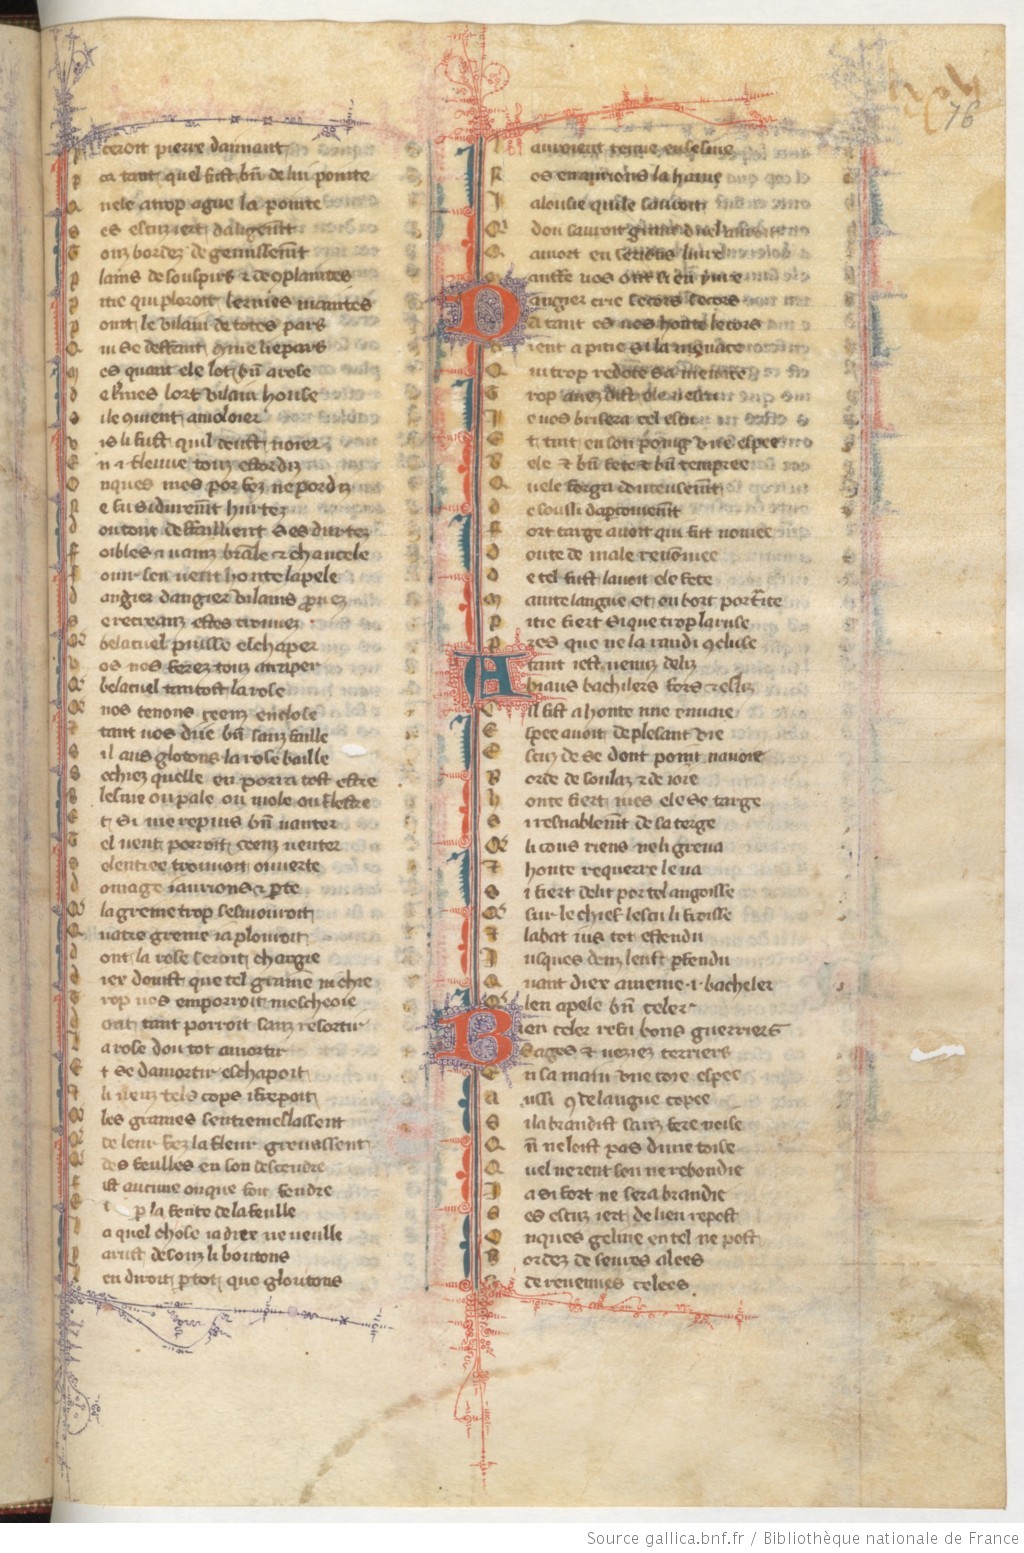 76
P ceroit pierre daimant
P or tant quel fust bn de lui pointe
Q nele a trop ague la pointe
S es escuz iert dalegent
G oinz bordez de gemissemt
P lains de soupirs & de 9plaintes
P itie qui ploroit lermes maintes
P oint le vilain de totes pars
Q ui se deffent 9me liepars
M es quant ele lot bn arose
D e lermes lort vilain house
S i le 9uient amoloier
V is li fust quil deust noier
E n .i. fleuve touz estordiz
O nques mes por fez ne por diz
N e fu si duremt hurtez
D ou tout deffaillient ses durtez
F oibles & vainz branle & chancele
F ouir sen veut honte lapele
D angier dangier vilains prouez
S e recreanz estes trouvez
Q belacuel puisse eschaper
V os nos ferez touz atraper
Q belacuel tantost la rose
Q nos tenons ceenz enclose
T tant vos di ie bn sanz faille
S il aus glotons la rose baille
S achiez quelle en porra tost estre
B lesmie ou pale ou mole ou flestre
E t si me repuis bn vanter
T el vent porroit ceenz venter
S e lentree trovoit ouverte
D omage i aurions & pte
Q la greme trop sesmouvroit
Q autre greme i a plouvroit
D ont la rose seroit chargie
D iex doinst que tel graine ni chie
T rop nos emporroit mescheoir
C ont tant porroit sanz resortir
L a rose dou tot amortir
E t se damortir eschapoit
E li venz tels cops i frepoit
Q les graines sentremellassent
Q de leur fez la fleur grevassent
Q des feulles en son descendre
F ist aucune onque soit fendre
E t p la fente de la feulle
L a quel chose ia diex ne veulle
P arust desouz li boutons
L en diroit ptot que gloutons
L auroient tenue en sesine
N os en aurions la haine
J alousie qui le sauroit
Q dou savoir grant duel auroit
Q a mort en serions livre
M aufe vos ont si en yvre
D angier crie secors secors
A tant es vos honte le cors
V ient a pitie si la menace
Q ui trop redote sa menace
T rop avez dist ele vescu
J e vos brisera cel escu
E t tint en son poing une espee
B ele & bn fete & bn tempree
Q uele forga douteusemt
D e soussi dapcevemt
F ort targe avoit qui fut nomee
D oute de male renomee
D e tel fust lavoit ele fete
M ainte langue ot ou bort portrete
P itie fiert si que trop la ruse
P res que ne la randi 9cluse
A tant i est venuz deliz
B iaus bachelers fors & esliz
C il fist a honte une envaie
E spee avoit de plesant vie
E scu de se dont point navoie
B orde de soulaz & de ioie
H onte fiert mes ele se targe
S i resnablemt de sa targe
Q li cous riens ne li greva
T honte requerre le va
S i fiert delit por tel angoisse
Q sur le chief lescu li froisse
T labat ius tot estendu
J usques denz leust pfendu
Q uant diex ameine .i. bacheler
Q len apele bn celer
B ien celer refu bons guerriers
S ages & veziez terriers
E n sa main une coie espee
A ussi 9 de langue copee
S i la brandist sanz fere noise
Q n ne loist pas dune toise
Q uel ne rent son ne rebondie
J a si fort ne sera brandie
S es escuz iert de lieu repost
O nques geline en tel ne post
B ordez de seures alees
de revenues celees.
Source gallica.bnf.fr / Bibliothèque nationale de France